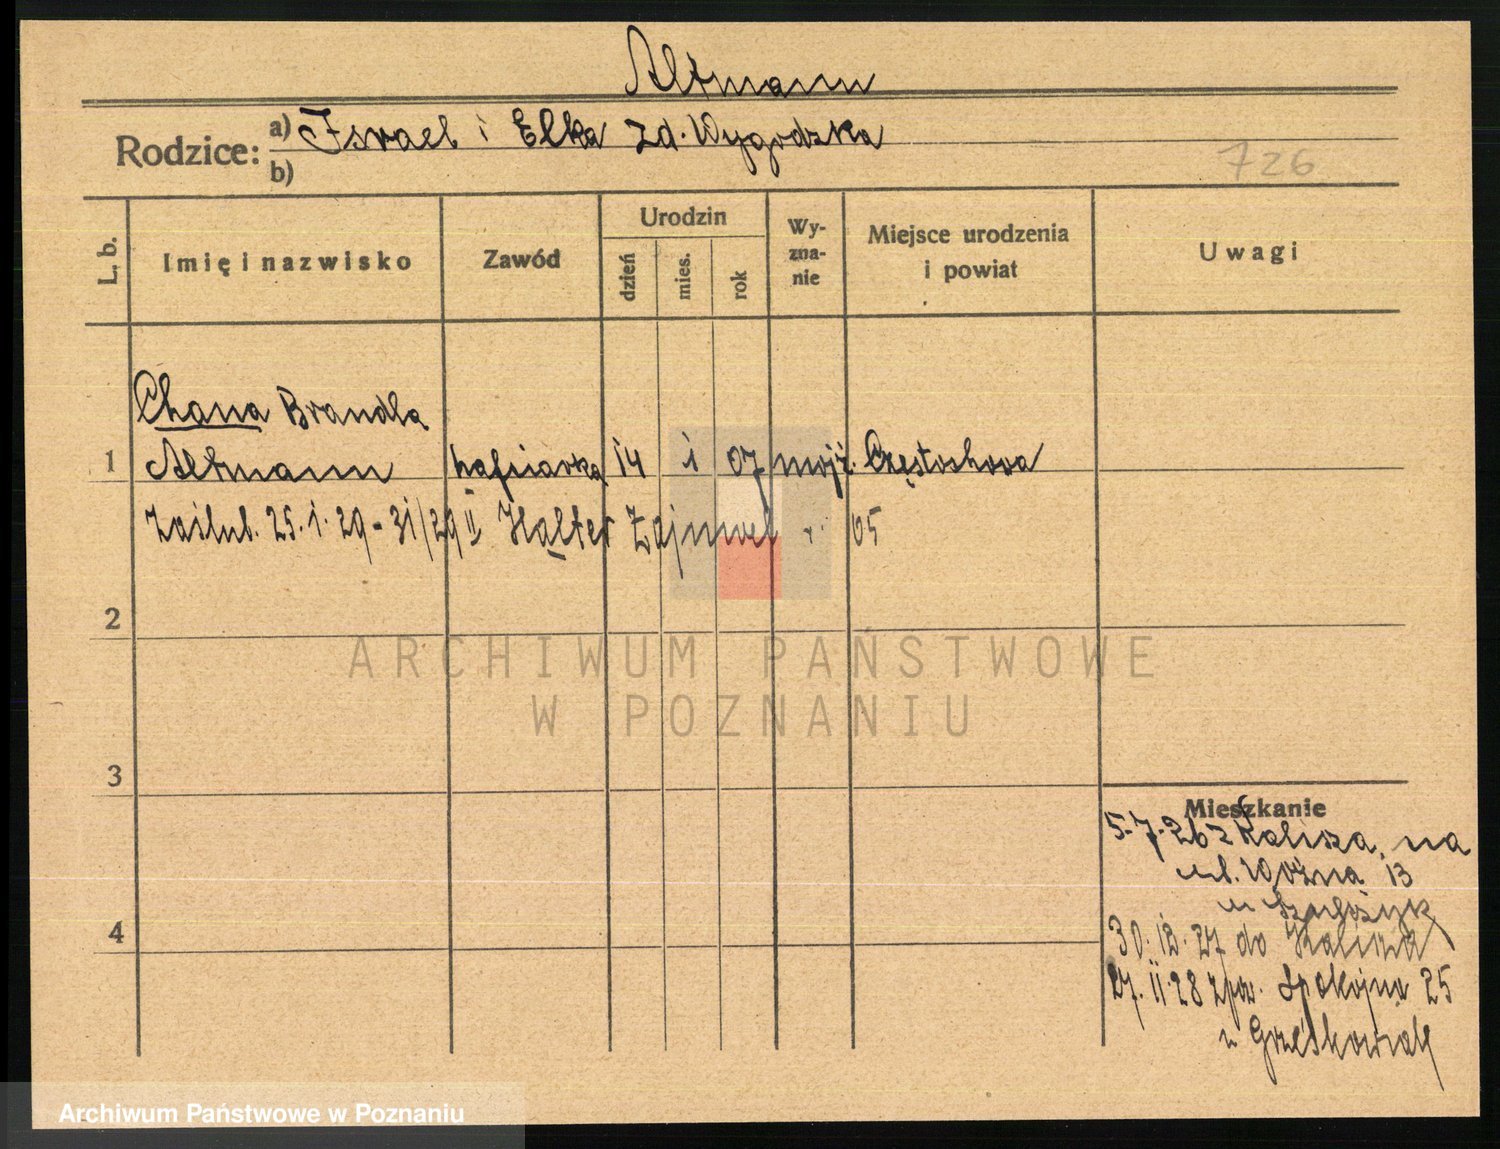 Altmann
Rodzice: a) Israel i Elka zd. Wygodzka
b)
726
L. b.
Imię i nazwisko
Zawód
Urodzin
dzień
mies.
rok
Wy-
zna-
nie
Miejsce urodzenia
i powiat
Uwagi
Chana Brandla
1 Altmann hafciarka 14 1 07 mojż. Częstochowa
Zaślub. 25.1.29 - 31/29 II Halter Zajnwel r. 05
2
ARCHIWUM PAŃSTWOWE
W POZNANIU
3
Mieszkanie
5-7-26 z Kalisza, na
ul. Woźna 13
4
30.12.27 do Kalisza
27.II.28 zpw. Spokojna 25
u Grześkowiak
Archiwum Państwowe w Poznaniu